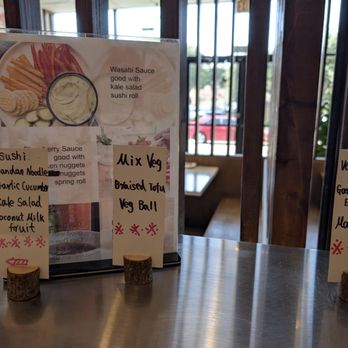 Wasabi Sauce
good with
kale salad
sushi roll
erry Sauce
good with
ken nuggets
nuggets
spring roll
Sushi
andan Noodle
arlic Cucumb
Kale Salad
oconut Milk
fruit
Mix Veg
Braised Tofu
Veg Ball